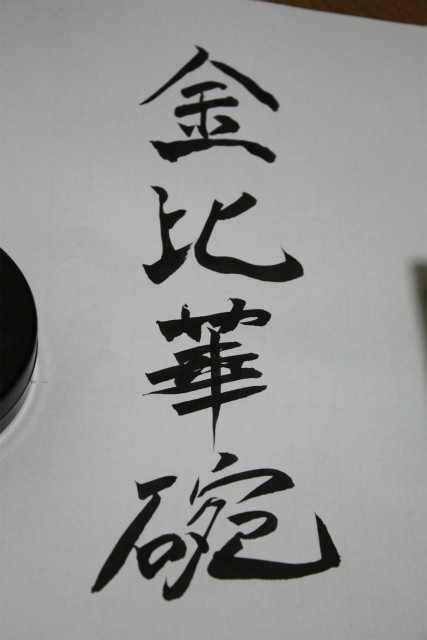 金比華碗